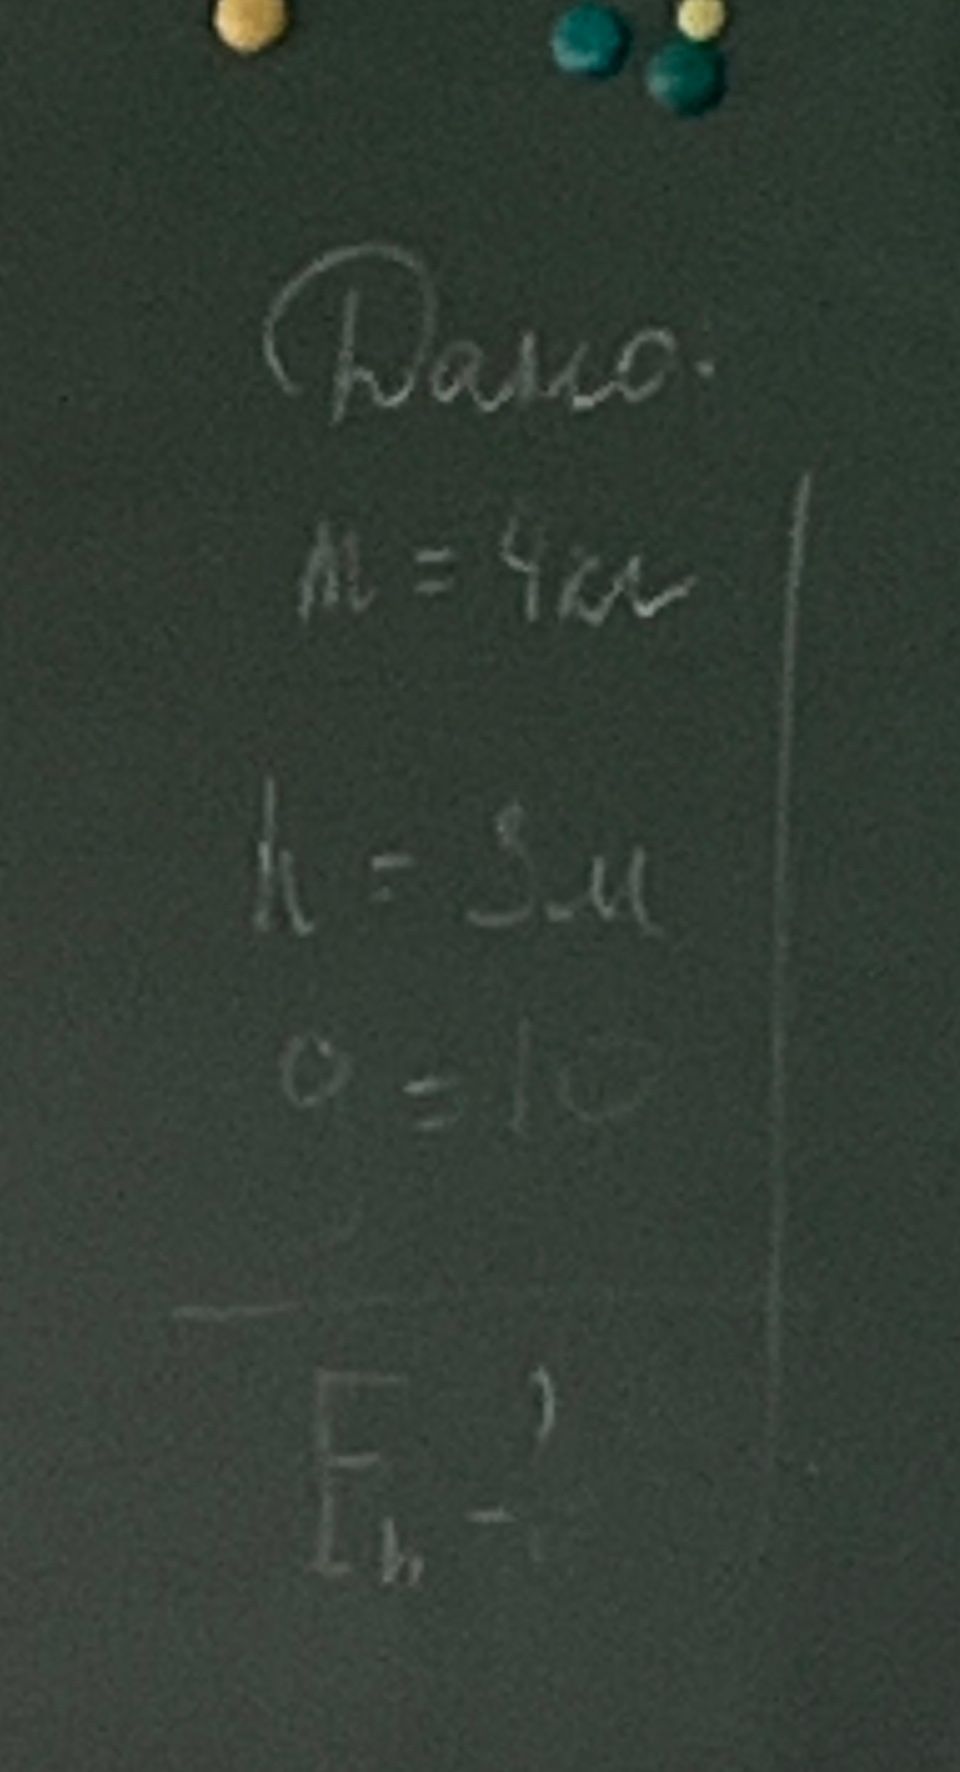 Дано.
m = 4кг
h = 3м
g = 10
Eh - ?